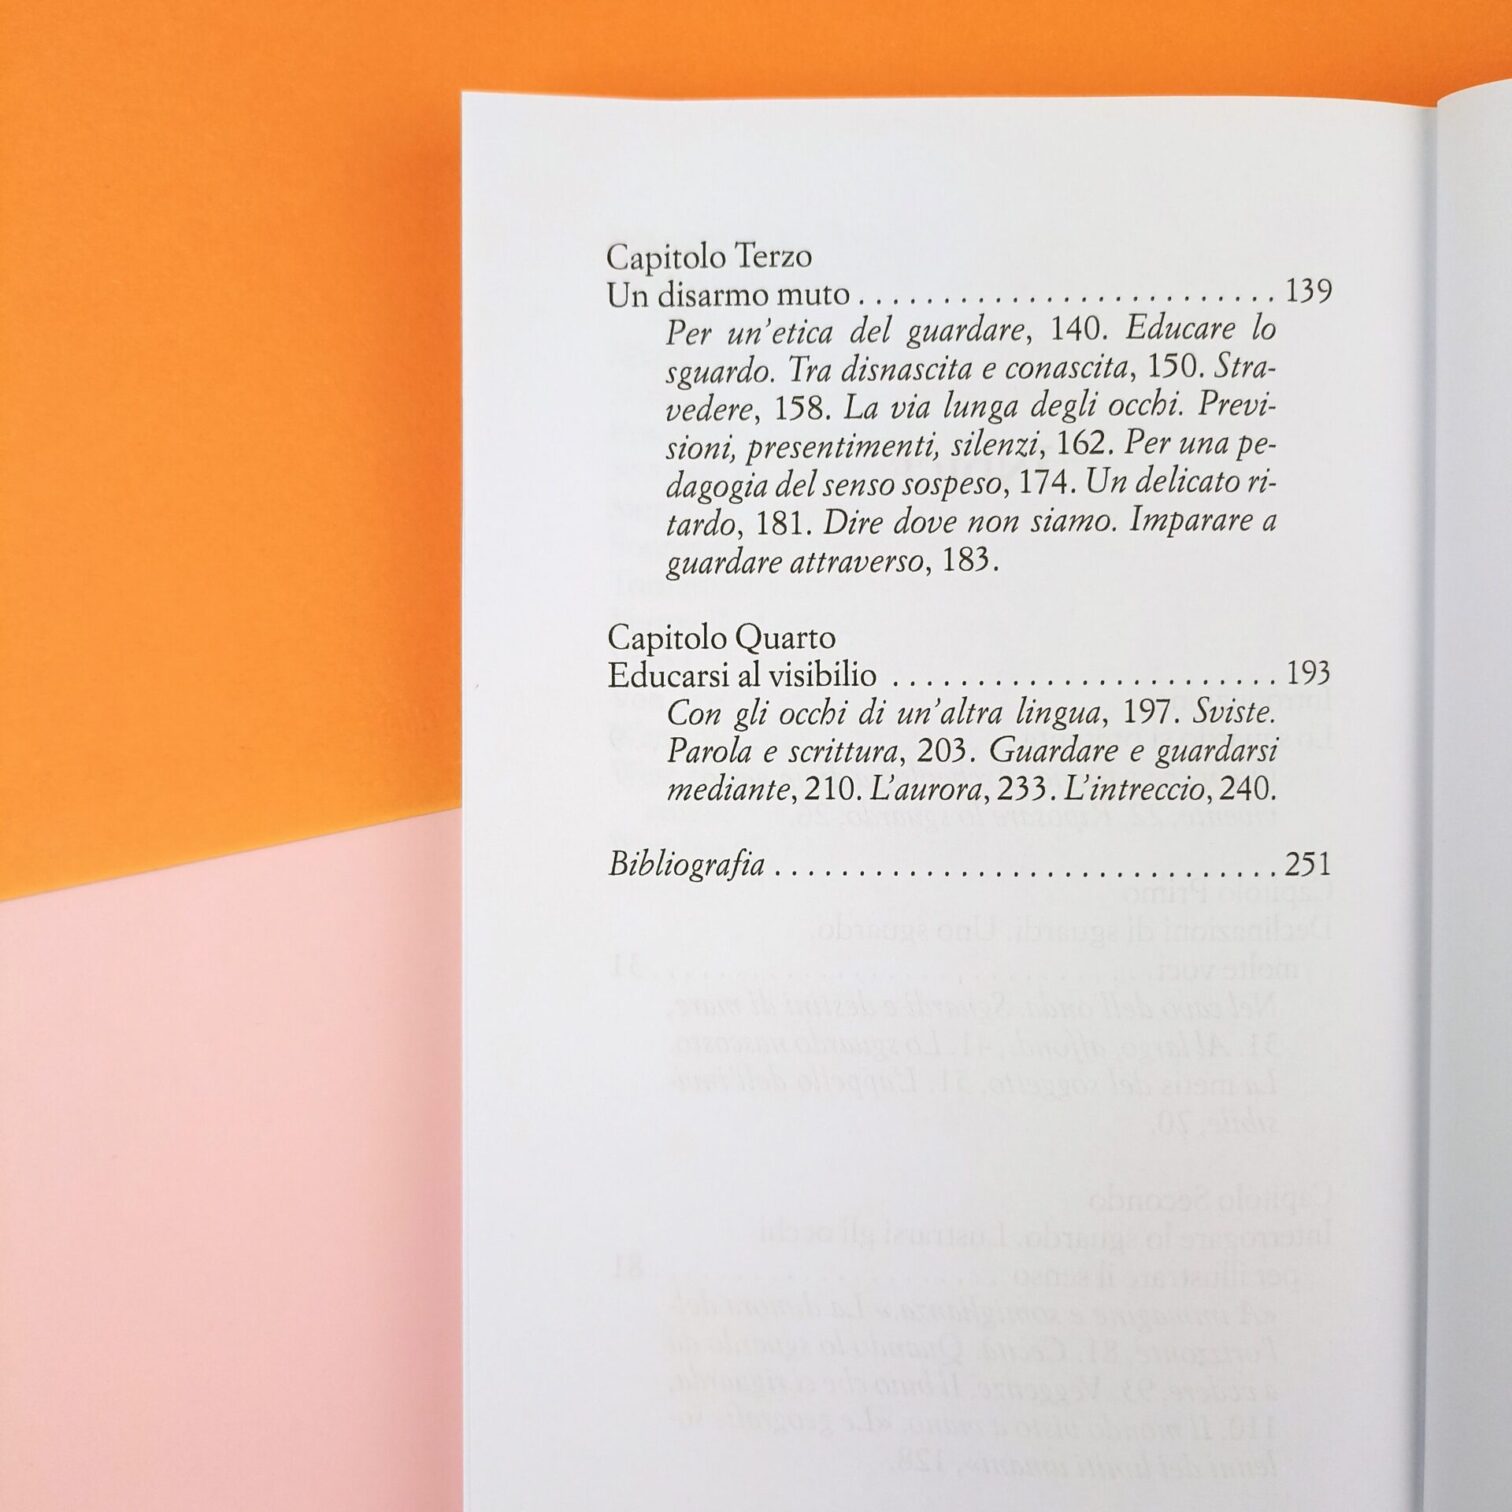 Capitolo Terzo
Un disarmo muto . . . . . . . . . . . . . . . . . . . . . . . . . 139
Per un'etica del guardare, 140. Educare lo
sguardo. Tra disnascita e conascita, 150. Stra-
vedere, 158. La via lunga degli occhi. Previ-
sioni, presentimenti, silenzi, 162. Per una pe-
dagogia del senso sospeso, 174. Un delicato ri-
tardo, 181. Dire dove non siamo. Imparare a
guardare attraverso, 183.
Capitolo Quarto
Educarsi al visibilio . . . . . . . . . . . . . . . . . . . . . . . 193
Con gli occhi di un'altra lingua, 197. Sviste.
Parola e scrittura, 203. Guardare e guardarsi
mediante, 210. L'aurora, 233. L'intreccio, 240.
Bibliografia . . . . . . . . . . . . . . . . . . . . . . . . . . . . . . 251